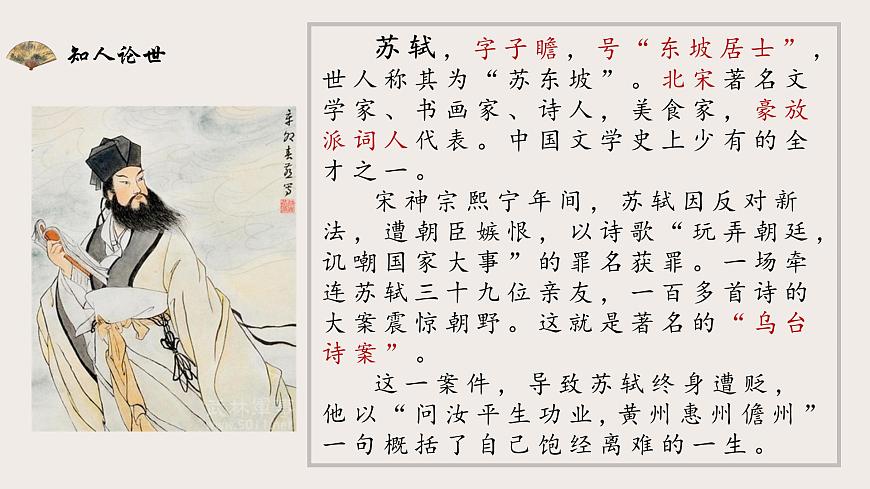 知人论世
苏轼，字子瞻，号“东坡居士”，
世人称其为“苏东坡”。北宋著名文
学家、书画家、诗人，美食家，豪放
派词人代表。中国文学史上少有的全
才之一。
宋神宗熙宁年间，苏轼因反对新
法，遭朝臣嫉恨，以诗歌“玩弄朝廷，
讥嘲国家大事”的罪名获罪。一场牵
连苏轼三十九位亲友，一百多首诗的
大案震惊朝野。这就是著名的“乌台
诗案”。
这一案件，导致苏轼终身遭贬，
他以“问汝平生功业,黄州惠州儋州”
一句概括了自己饱经离难的一生。